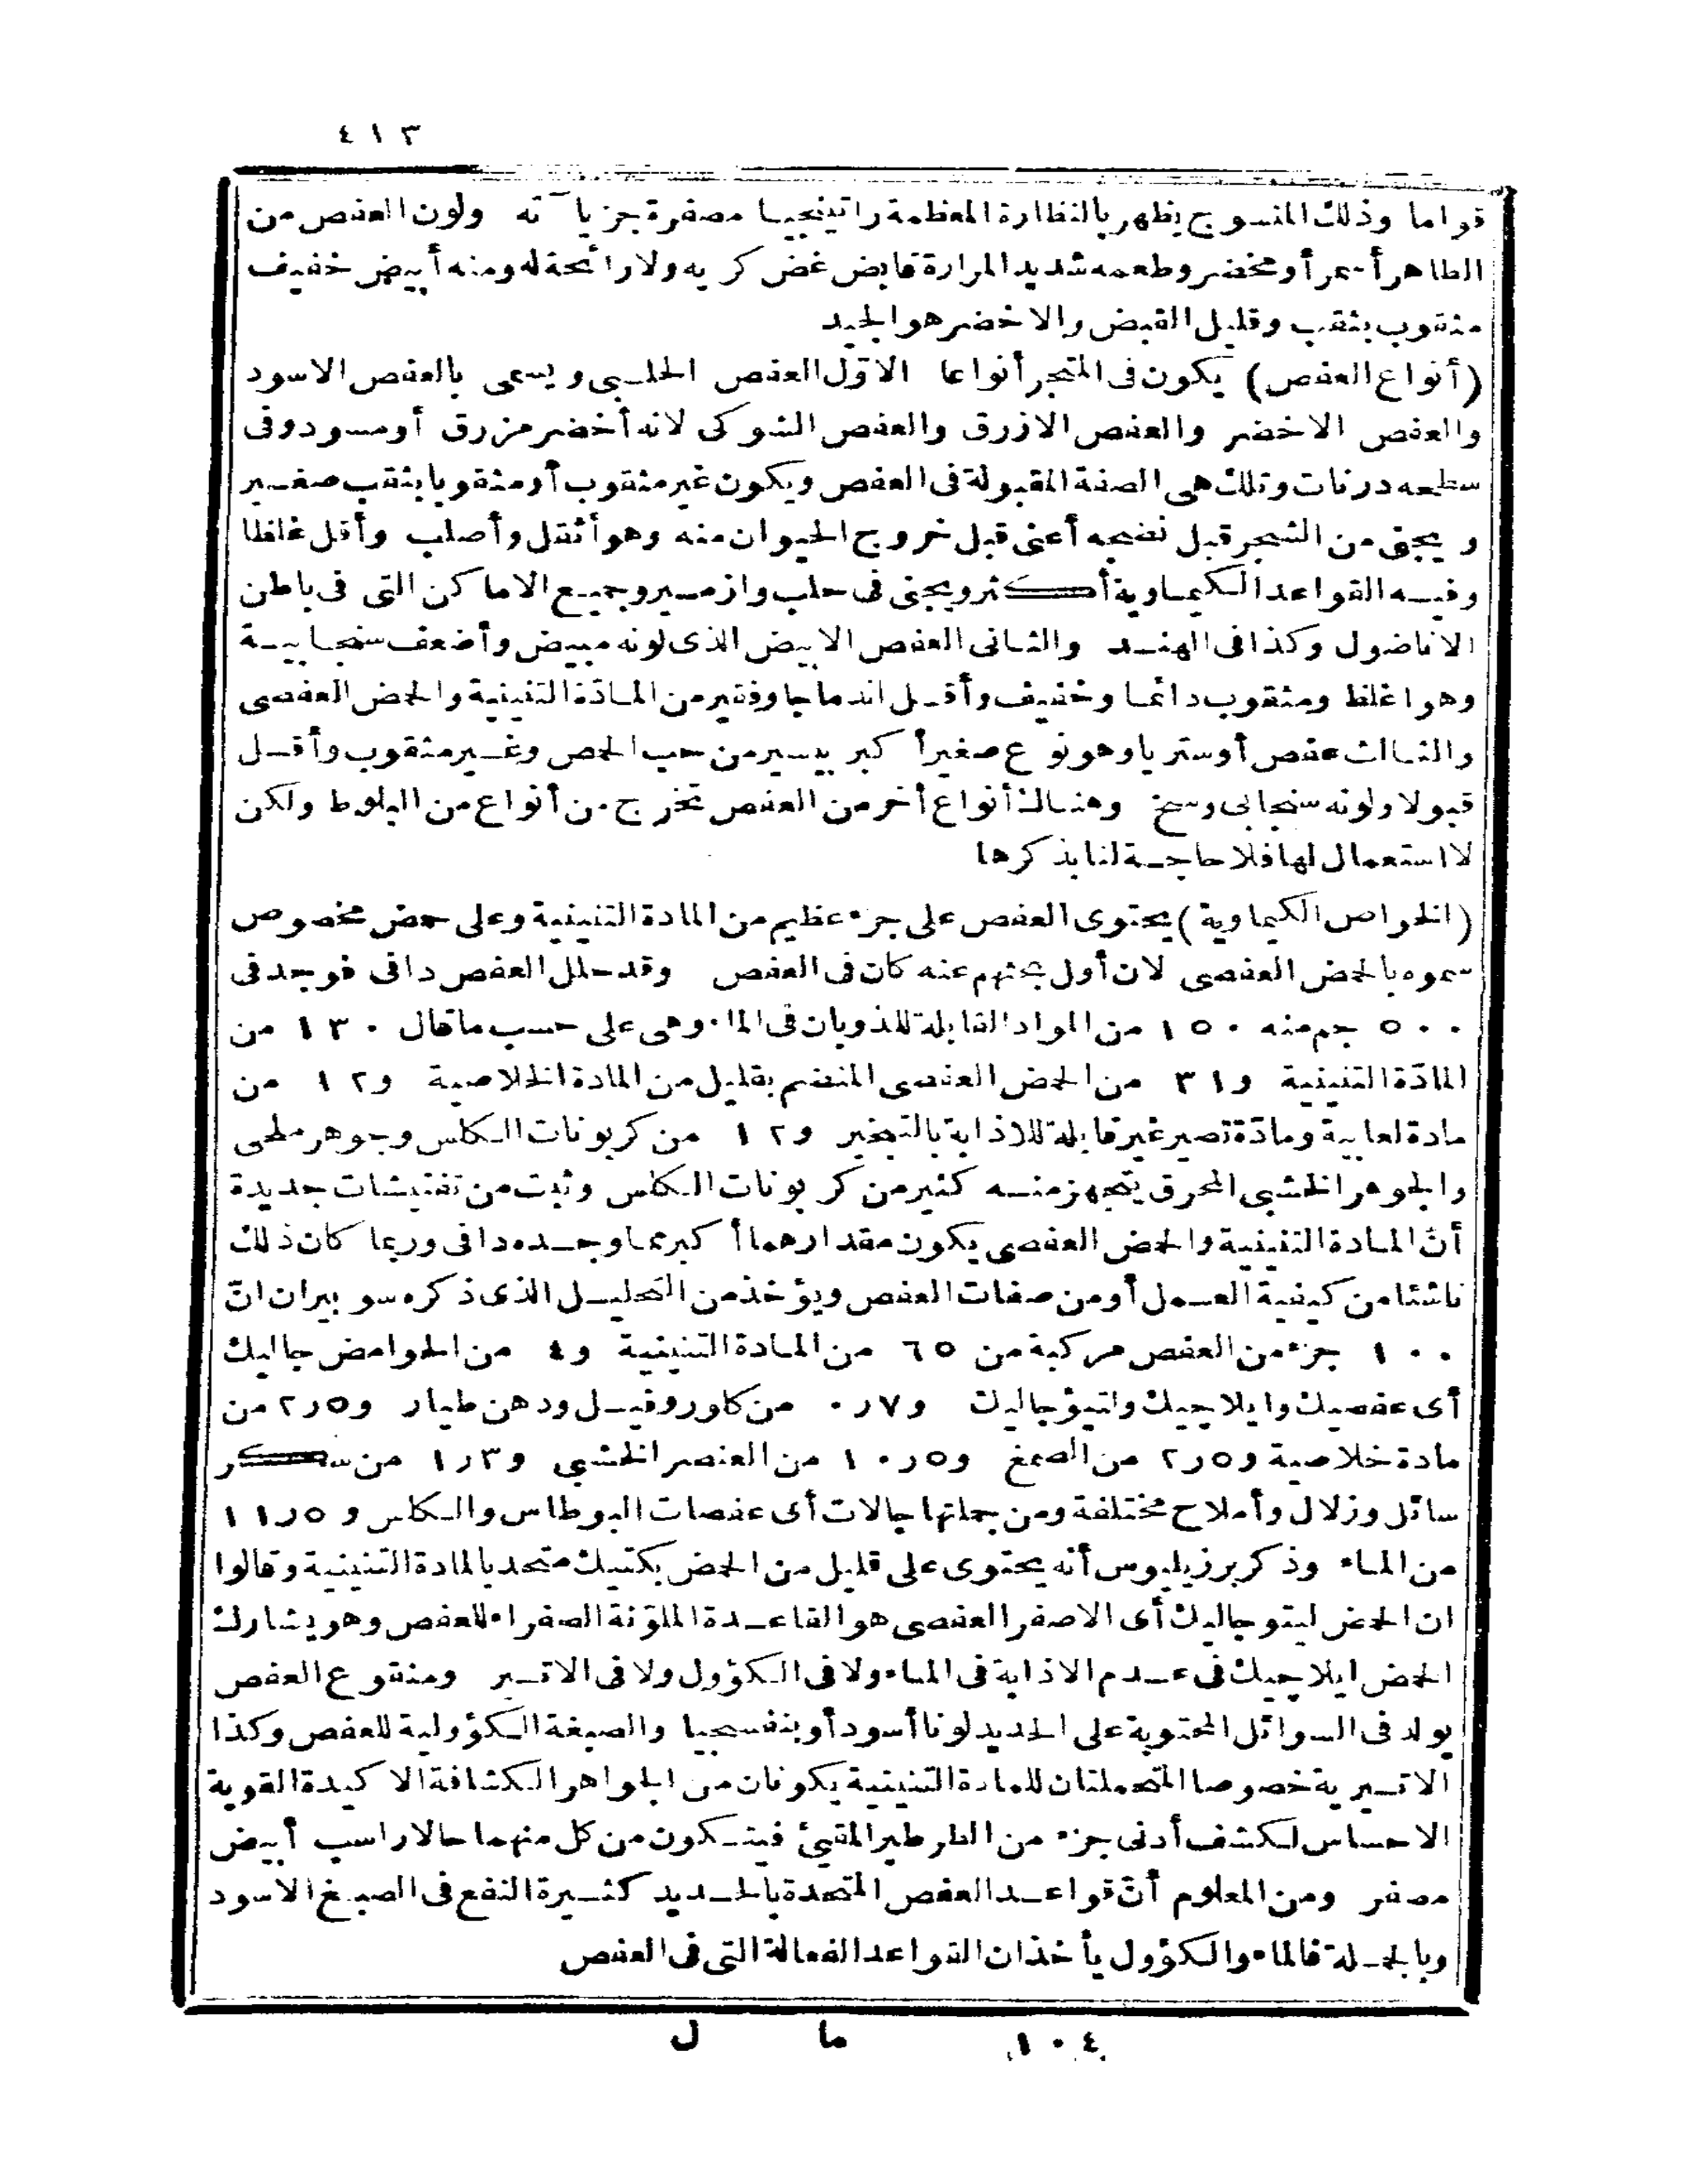 ٤١٣
قواما وذلك المنسوج يظهر بالنظارة المعظمة راتينجيا مصفرة جزيآته ولون العفص من
الظاهر أحمر أو مخضر وطعمه شديد المرارة قابض غض كريه ولا رائحة له ومنه أبيض خفيف
مثقوب بثقب وقليل القبض والاخضر هو الجيد
(أنواع العفص) يكون فى المتجر أنواعا الاوّل العفص الحلبى ويسمى بالعفص الاسود
والعفص الاخضر والعفص الازرق والعفص الشوكى لانه أخضر مزرق أو مسود وفى
سطحه درنات وتلك هى الصفة المقبولة فى العفص ويكون غير مثقوب أو مثقوبا بثقب صغير
ويجنى من الشجر قبل نضجه أعنى قبل خروج الحيوان منه وهو أثقل وأصلب وأقل غلظا
وفيه القواعد الكيماوية أكثر ويجنى فى حلب وازمير وجميع الاماكن التى فى باطن
الاناضول وكذا فى الهند والثانى العفص الابيض الذى لونه مبيض وأضعف سنجابية
وهو اغلظ ومثقوب دائما وخفيف وأقل اندماجا وفقير من المادّة التنينية والحمض العفصى
والثالث عفص أوستريا وهو نوع صغير أكبر بيسير من حب الحمص وغير مثقوب وأقل
قبولا ولونه سنجابى وسخ وهناك أنواع أخر من العفص تخرج من أنواع من البلوط ولكن
لا استعمال لها فلا حاجة لنا بذكرها
(الخواص الكيماوية) يحتوى العفص على جزء عظيم من المادة التنينية وعلى حمض مخصوص
سموه بالحمض العفصى لان أول بحثهم عنه كان فى العفص وقد حلل العفص دافى فوجد فى
٥٠٠ جم منه ١٥٠ من المواد القابلة للذوبان فى الماء وهى على حسب ما قال ١٣٠ من
المادّة التنينية و٣١ من الحمض العفصى المنضم بقليل من المادة الخلاصية و١٢ من
مادة لعابية ومادّة تصير غير قابلة للاذابة بالتبخير و١٢ من كربونات الكلس وجوهر ملحى
والجوهر الخشبى المحرق يتجهز منه كثير من كربونات الكلس وثبت من تفتيشات جديدة
أنّ المادة التنينية والحمض العفصى يكون مقدارهما أكبر مما وجده دافى وربما كان ذلك
ناشئا من كيفية العمل أو من صفات العفص ويؤخذ من التحليل الذى ذكره سوبيران انّ
١٠٠ جزء من العفص مركبة من ٦٥ من المادة التنينية و٤ من الحوامض جاليك
أى عفصيك وايلاجيك ولتيؤجاليك و٠٫٧ من كلوروفيل ودهن طيار و٢٫٥ من
مادة خلاصية و٢٫٥ من الصمغ و١٠٫٥ من العنصر الخشبى و١٫٣ من سكر
سائل وزلال وأملاح مختلفة ومن جملتها جالات أى عفصات البوطاس والكلس و١١٫٥
من الماء وذكر برزيليوس أنه يحتوى على قليل من الحمض بكتيك متحد بالمادة التنينية وقالوا
ان الحمض ليتوجاليك أى الاصفر العفصى هو القاعدة الملوّنة الصفراء للعفص وهو يشارك
الحمض ايلاجيك فى عدم الاذابة فى الماء ولا فى الكؤول ولا فى الاتير ومنقوع العفص
يولد فى السوائل المحتوية على الحديد لونا أسود أو بنفسجيا والصبغة الكؤولية للعفص وكذا
الاتيرية خصوصا المتحملتان للمادة التنينية يكونان من الجواهر الكشافة الاكيدة القوية
الاحساس لكشف أدنى جزء من الطرطير المقيئ فيتكون من كل منهما حالا راسب أبيض
مصفر ومن المعلوم أنّ قواعد العفص المتحدة بالحديد كثيرة النفع فى الصبغ الاسود
وبالجملة فالماء والكؤول يأخذان القواعد الفعالة التى فى العفص
١٠٤ ما ل